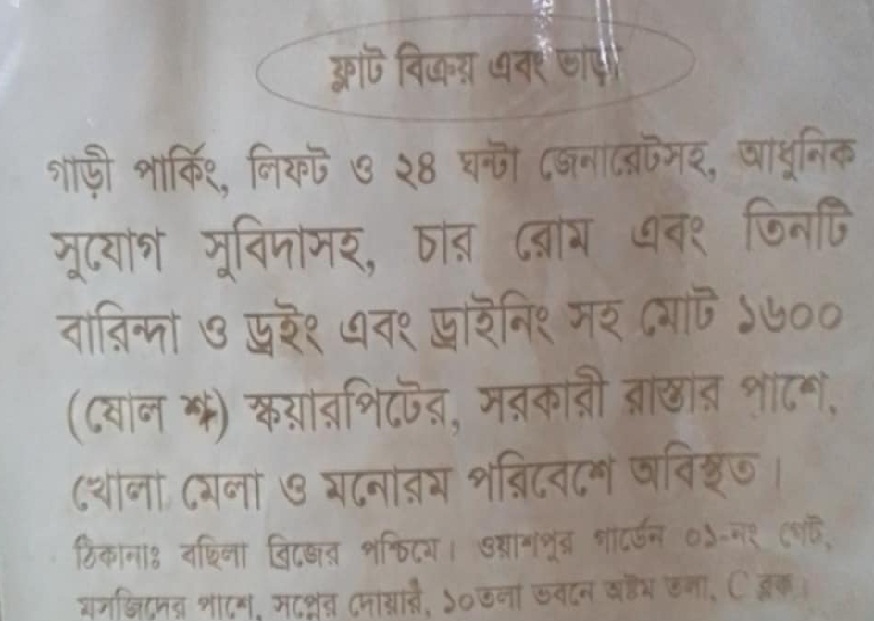 ফ্লাট বিক্রয় এবং ভাড়া
গাড়ী পার্কিং, লিফট ও ২৪ ঘন্টা জেনারেটসহ, আধুনিক
সুযোগ সুবিদাসহ, চার রোম এবং তিনটি
বারিন্দা ও ড্রইং এবং ড্রাইনিং সহ মোট ১৬০০
(ষোল শ্ত) স্কয়ারপিটের, সরকারী রাস্তার পাশে,
খোলা মেলা ও মনোরম পরিবেশে অবিস্থত।
ঠিকানাঃ বছিলা ব্রিজের পশ্চিমে। ওয়াশপুর গার্ডেন ০১-নং গেট,
মসজিদের পাশে, সপ্নের দোয়ারে, ১০তলা ভবনে অষ্টম তলা, C ব্লক।